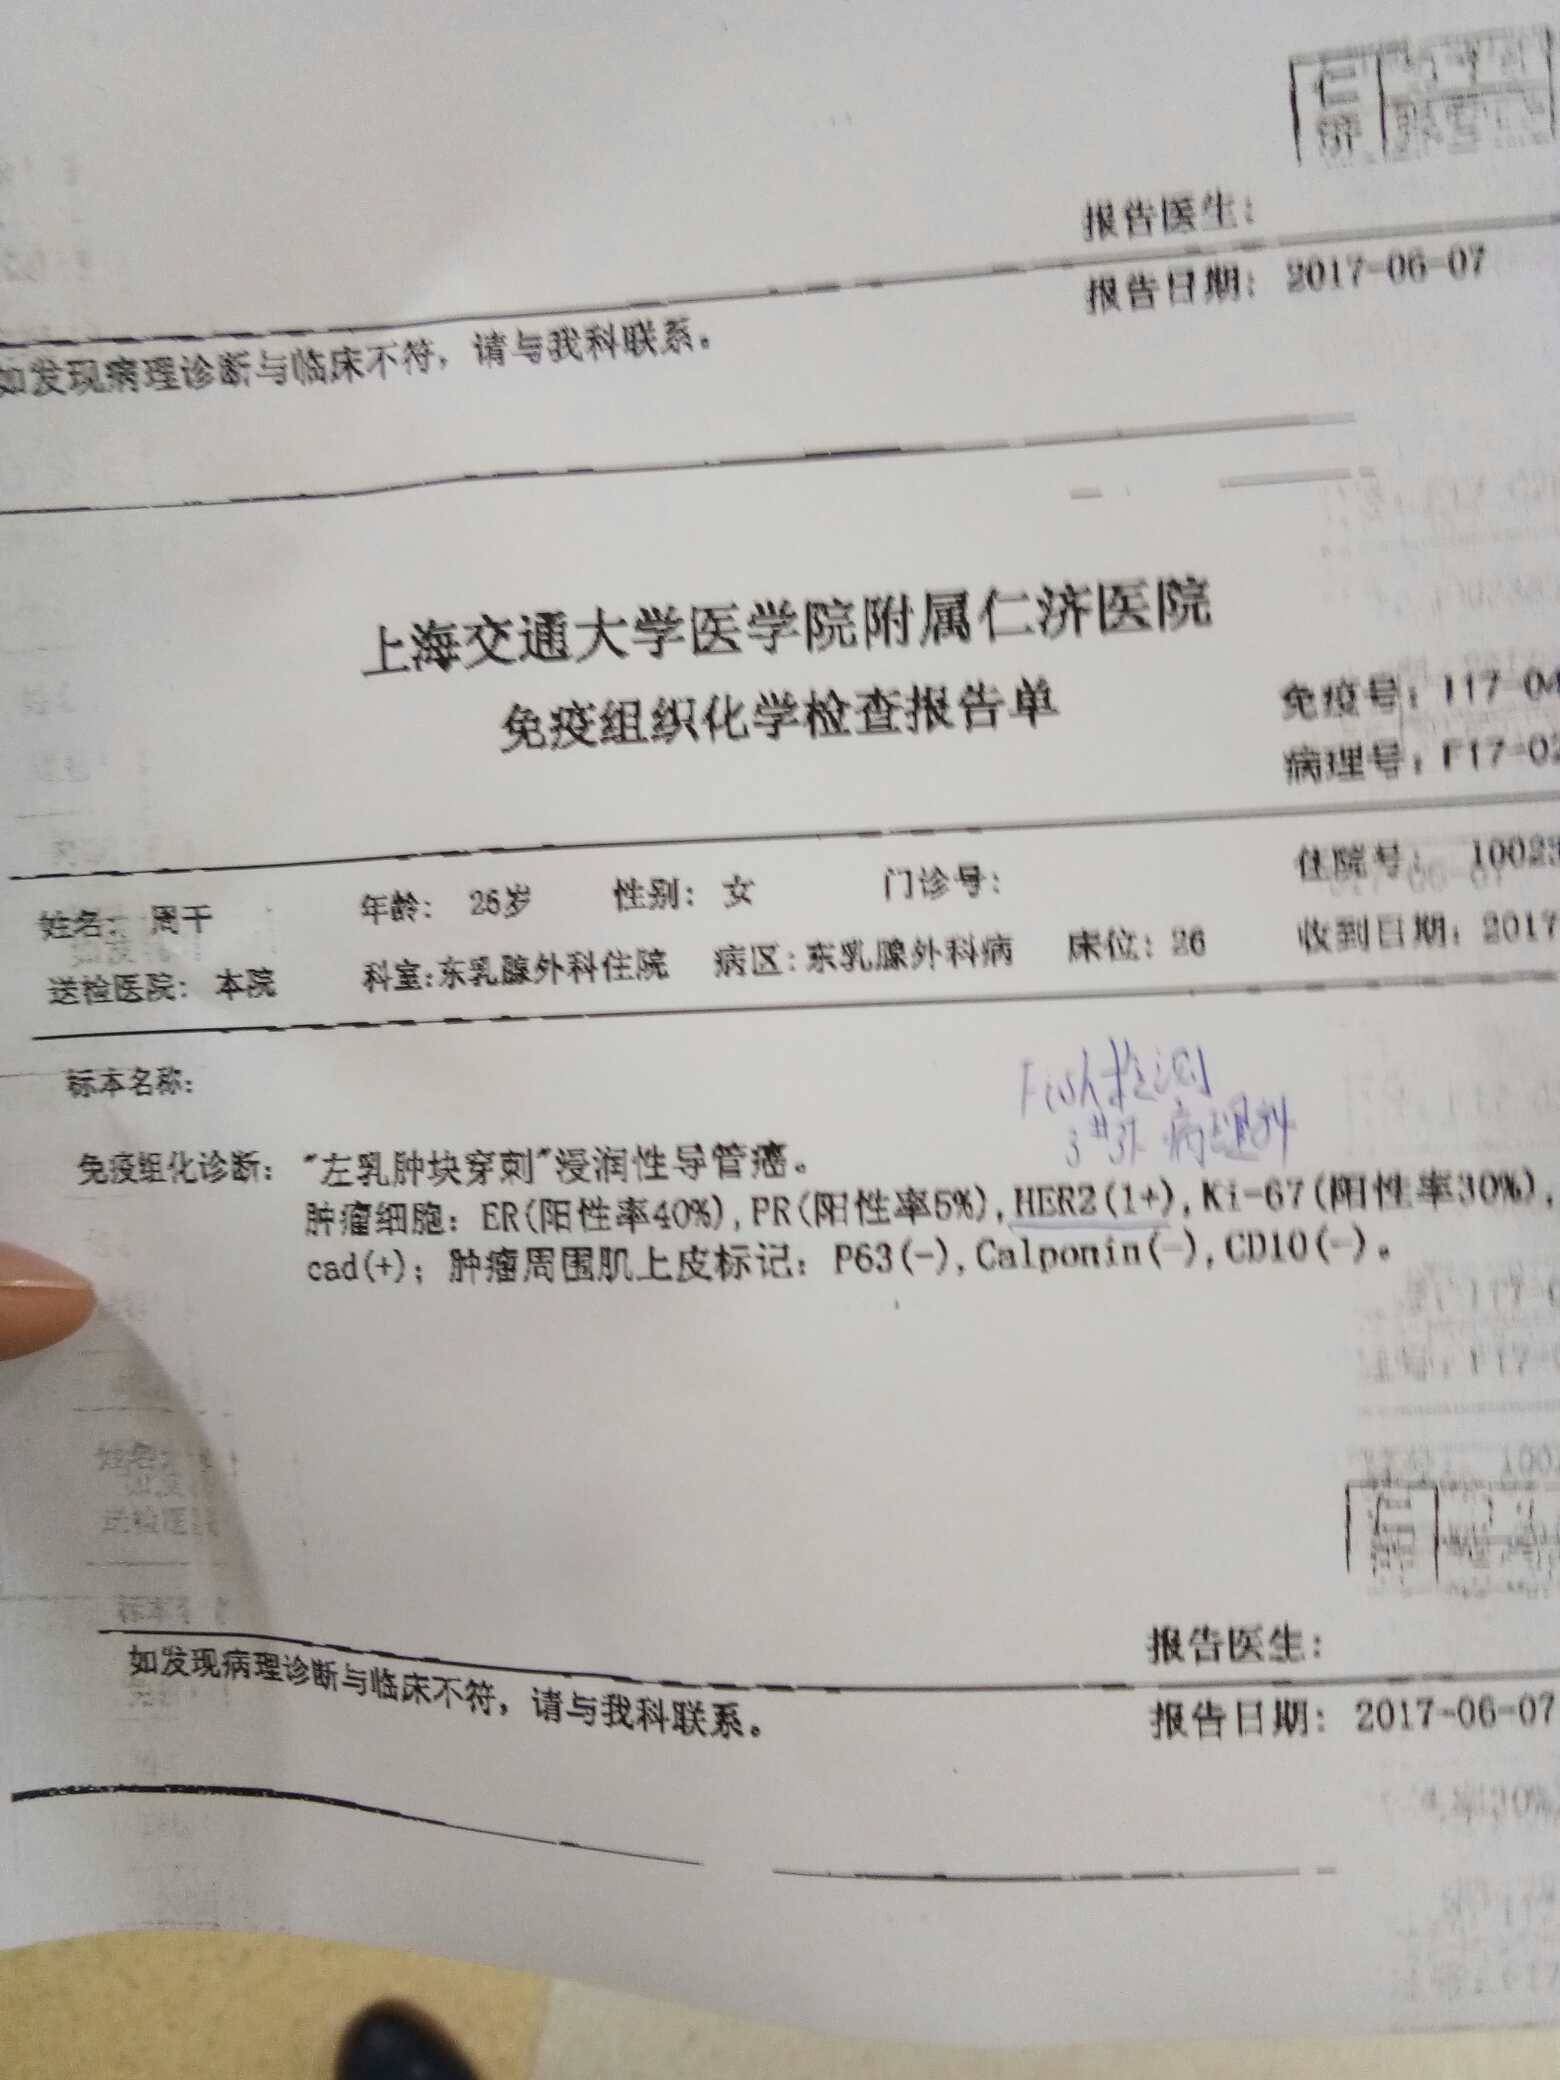 仁济
报告医生：
报告日期： 2017-06-07
如发现病理诊断与临床不符，请与我科联系。
上海交通大学医学院附属仁济医院
免疫组织化学检查报告单
免疫号：I17-04
病理号：F17-02
姓名： 周干 年龄： 26岁 性别： 女 门诊号： 住院号： 10023
送检医院： 本院 科室：东乳腺外科住院 病区：东乳腺外科病 床位：26 收到日期：2017
标本名称：
Fish检测
3#
免疫组化诊断： "左乳肿块穿刺"浸润性导管癌。
肿瘤细胞：ER(阳性率40%),PR(阳性率5%),HER2(1+),Ki-67(阳性率30%),
cad(+)；肿瘤周围肌上皮标记：P63(-),Calponin(-),CD10(-)。
仁济
报告医生：
如发现病理诊断与临床不符，请与我科联系。
报告日期： 2017-06-07